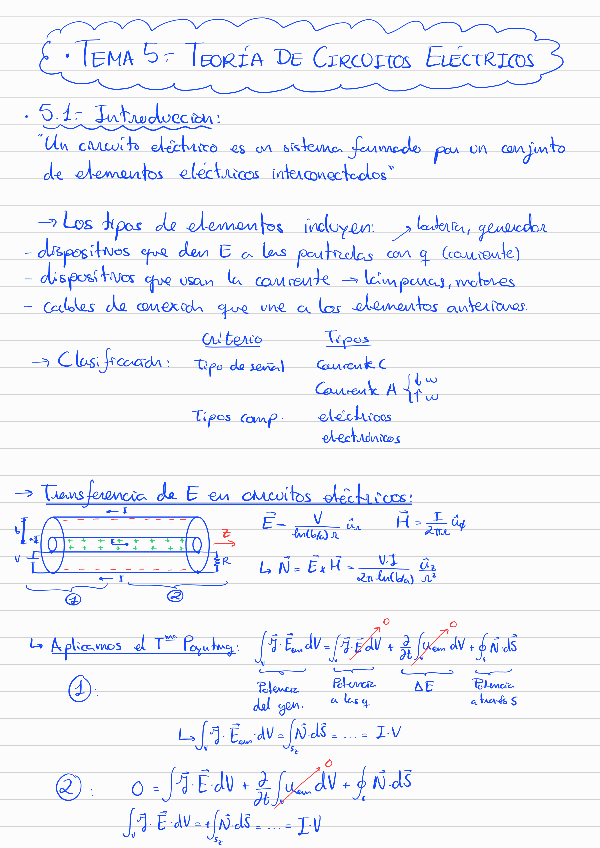 · TEMA 5.- TEORÍA DE CIRCUITOS ELÉCTRICOS
· 5.1.- Introducción:
"Un circuito eléctrico es un sistema formado por un conjunto
de elementos eléctricos interconectados"
→ Los tipos de elementos incluyen: ↗ batería, generador
- dispositivos que den E a las partículas con q (corriente)
- dispositivos que usan la corriente → lámparas, motores
- cables de conexión que une a los elementos anteriores.
Criterio Tipos
→ Clasificación: Tipo de señal Corriente C
Corriente A { ↓ω
↑ω
Tipos comp. eléctricos
electrónicos
→ Transferencia de E en circuitos eléctricos:
E⃗ = V / (ln(b/a) r) û_r H⃗ = I / (2πr) û_φ
↳ N⃗ = E⃗ x H⃗ = V·I / (2π ln(b/a)) û_z / r²
I
b
V
I
R
z
① ②
↳ Aplicamos el Tᵐᵃ Poynting: ∫ᵥ J⃗·E⃗ dV = ∫ᵥ J⃗·E⃗ dV + ∂/∂t ∫ᵥ u_em dV + ∮ₛ N⃗·dS⃗
0 0
①: Potencia del gen. Potencia a las q ΔE Potencia a través S
↳ ∫ᵥ J⃗·E⃗ · dV = ∫ N⃗·dS⃗ = .... = I·V
②: 0 = ∫ J⃗·E⃗·dV + ∂/∂t ∫ᵥ u_em dV + ∮ₛ N⃗·dS⃗
0
∫ᵥ J⃗·E⃗·dV = + ∫ N⃗·dS⃗ = .... = I·V